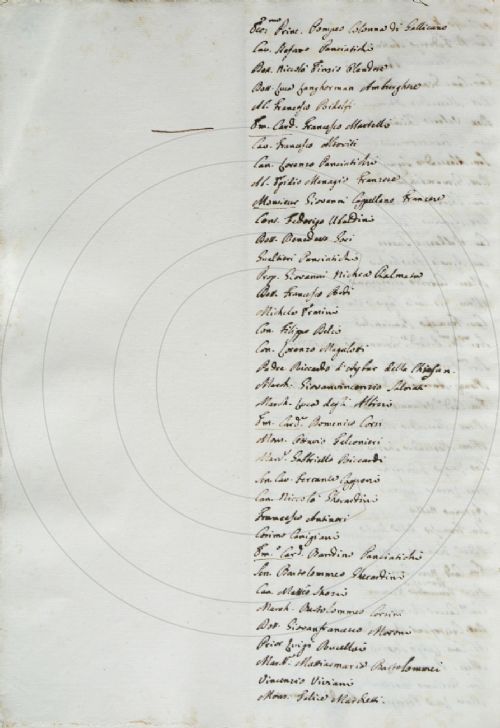 Ecc.mo Princ. Pompeo Colonna di Gallicano
Cav. Stefano Panciatichi
Dott. Niccolò Finzio Olandese
Dott. Luca Langherman Amburghese
Ab. Francesco Ridolfi
Em. Card. Francesco Martelli
Cav. Francesco Altoviti
Can. Lorenzo Panciatichi
Ab. Egidio Menagio Franzese
Monsieur Giovanni Cappellano Francese
Cons. Federigo Ubaldini
Dott. Benedetto Gori
Gualtieri Panciatichi
Prop. Giovanni Michea
Dott. Francesco Redi
Michele Ermini
Con. Filippo
Con. Lorenzo Magalotti
Padre Riccardo d'
March. Giovanvincenzio Salviati
March. Luca degli Albizi
Em. Card. Domenico Corsi
Mons. Ottavio Falconieri
Mar. Gabbriello Riccardi
Sen. Cav. Ferrante Capponi
Can. Niccolò Gherardini
Francesco Antinori
Cosimo Canigiani
Em. Card. Bandino Panciatichi
Sen. Bartolommeo Gherardini
Can. Matteo Strozzi
March. Bartolommeo Corsini
Dott. Giovanfrancesco Moroni
Prior Luigi Rucellai
March. Mattiasmaria Bartolommei
Vincenzio Viviani
Mons. Felice Marchetti.